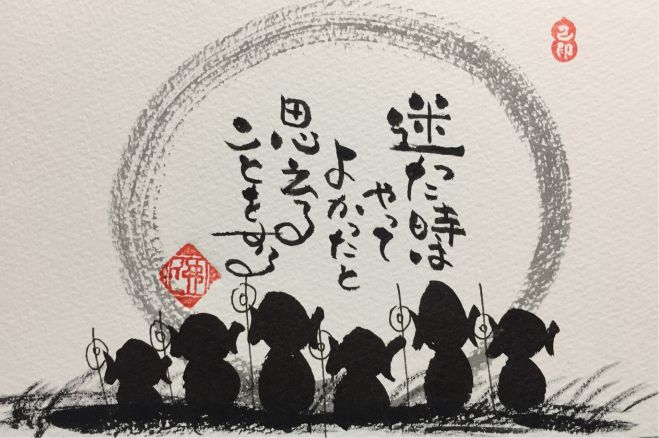 迷った時は
やって
よかったと
思える
ことをする